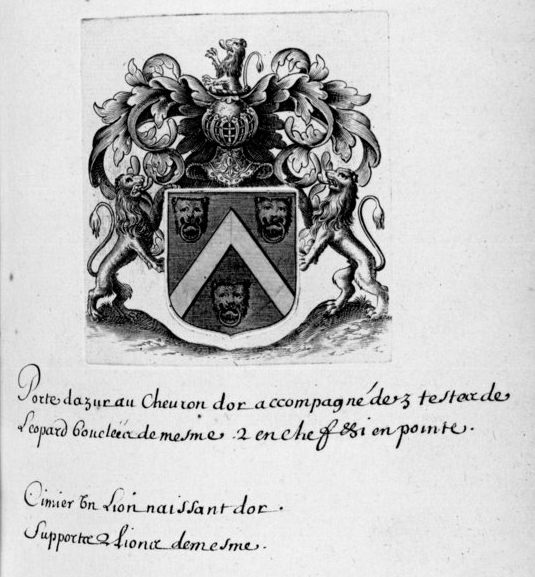 Porte dazur au Cheuron dor accompagné de 3 testes de
Leopard boucleés de mesme . 2 en chef & 1 en pointe .
Cimier Vn Lion naissant dor .
Supports 2 Lions de mesme .